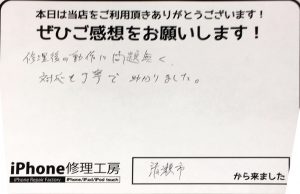 本日は当店をご利用頂きありがとうございます！
ぜひご感想をお願いします！
修理後の動作に問題無く
対応も丁寧で助かりました。
iPhone修理工房
iPhone Repair Factory
iPhone/iPad/iPod touch
清瀬市
から来ました